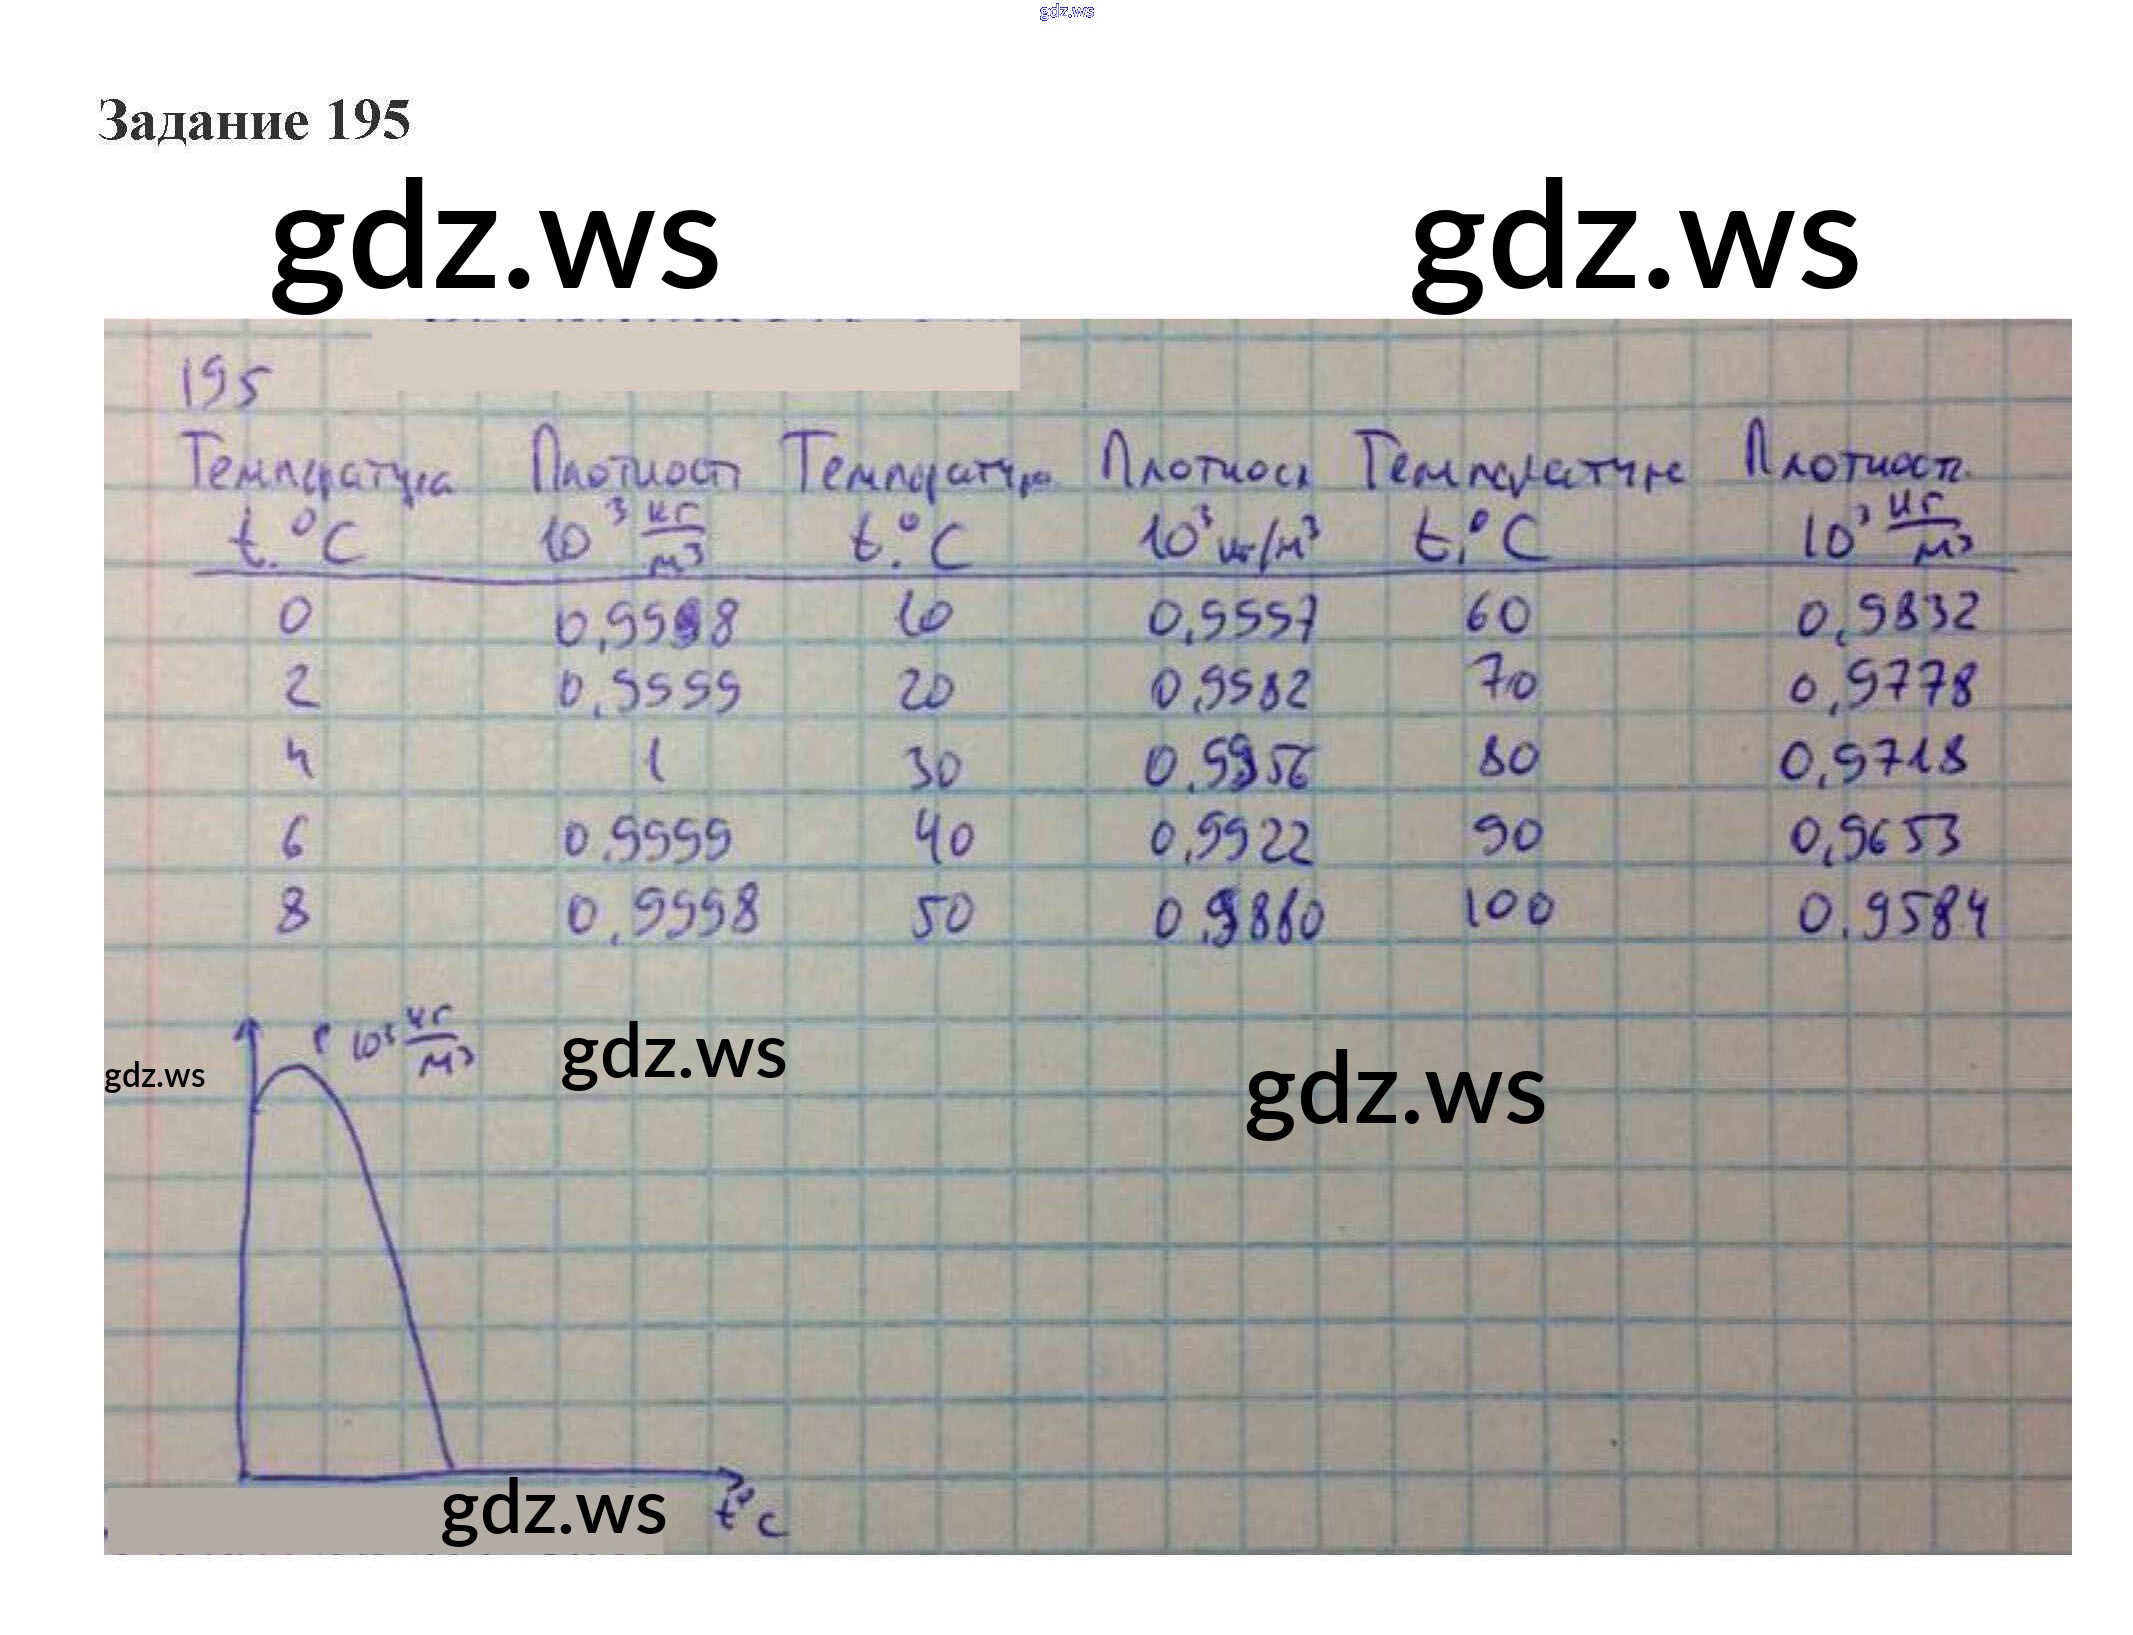 gdz.ws
Задание 195
gdz.ws gdz.ws
195
Температура Плотност Температура Плотност Температуре Плотност.
t.°C 10³ кг/м³ t.°C 10³ кг/м³ t.°C 10³ кг/м³
0 0,9998 10 0,9997 60 0,9832
2 0,9999 20 0,9982 70 0,9778
4 1 30 0,9956 80 0,9718
6 0,9999 40 0,9922 90 0,9653
8 0,9998 50 0,9880 100 0,9584
ρ 10³ кг/м³
gdz.ws gdz.ws gdz.ws
gdz.ws t°C